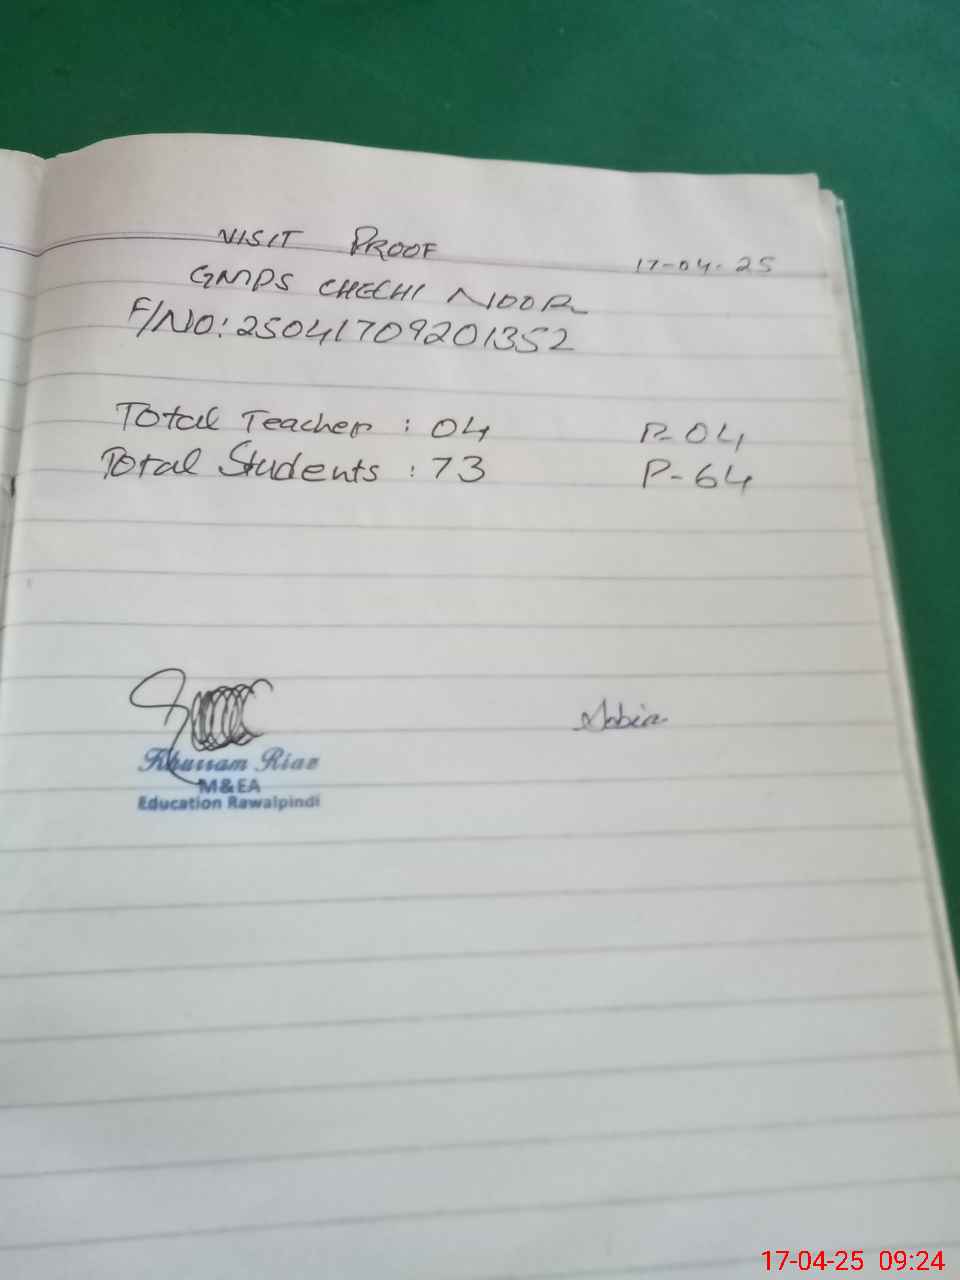 VISIT PROOF
17-04-25
GMPS CHECHI NOOR
F/NO: 25041709201352
Total Teacher : 04 P-04
Total Students : 73 P-64
Khurram Riaz
M&EA
Education Rawalpindi
Sobia
17-04-25 09:24